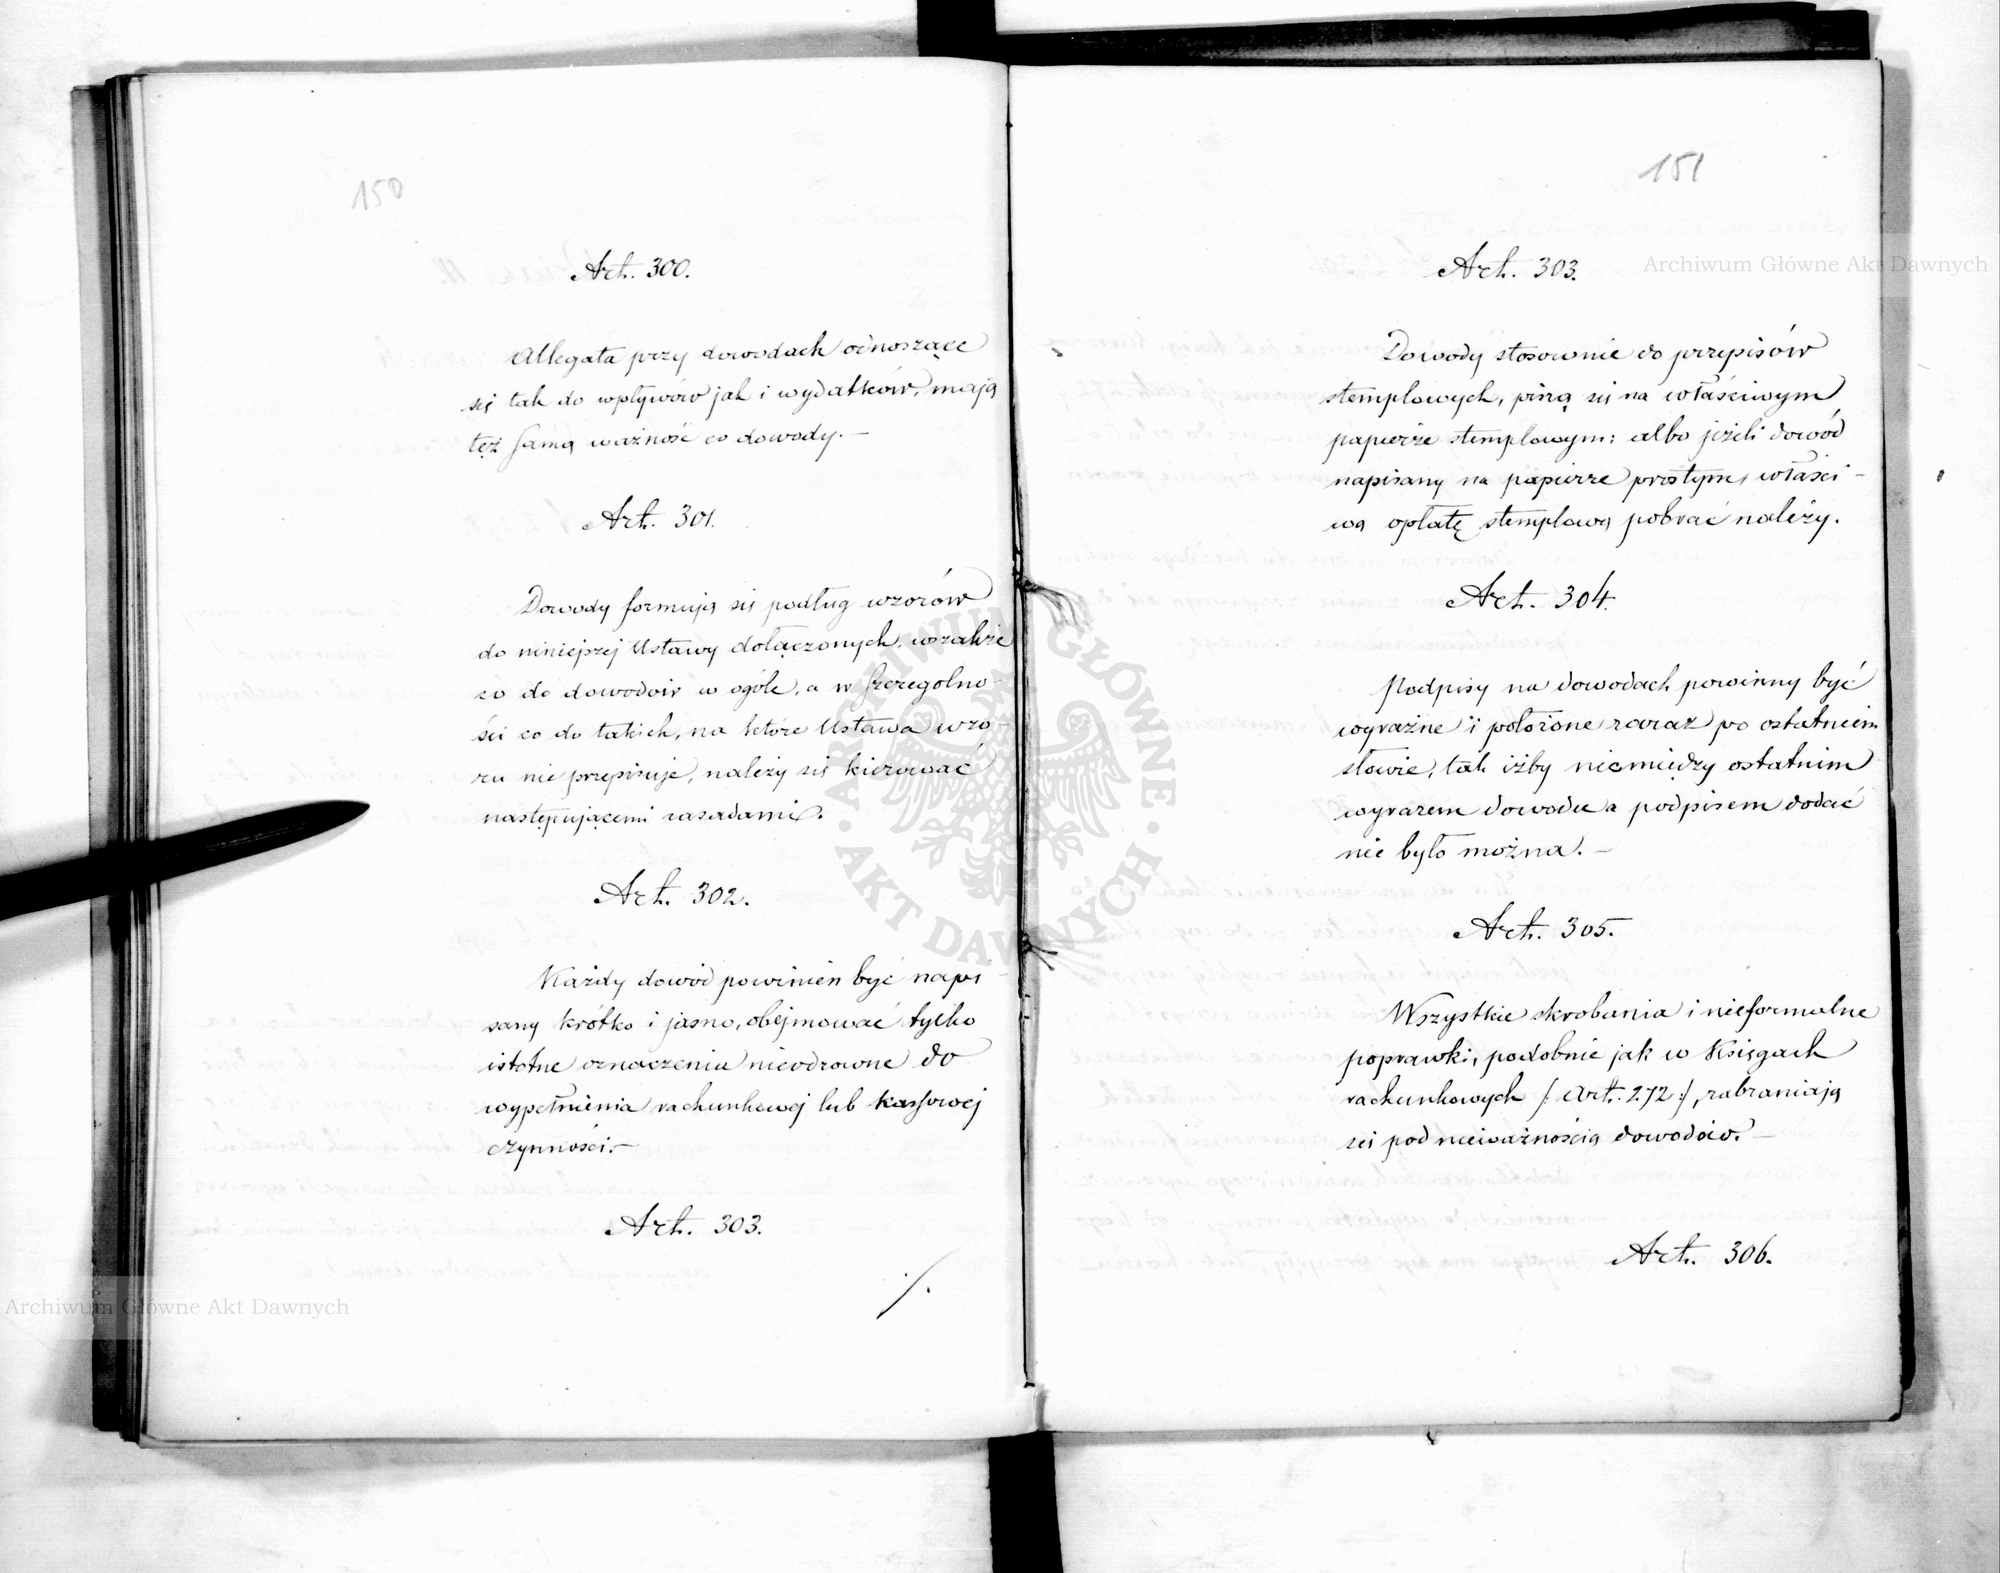 150
Art. 300.
Allegata przy dowodach odnoszące
się tak do wpływów jak i wydatków, mają
tęż samą ważność co dowody. —
Art. 301.
Dowody formują się podług wzorów
do niniejszej Ustawy dołączonych, wszakże
co do dowodów w ogóle, a w szczególno-
ści co do takich, na które Ustawa wzo-
ru nie przepisuje, należy się kierować
następującemi zasadami.
Art. 302.
Każdy dowód powinien być napi-
sany krótko i jasno, obejmować tylko
istotne oznaczenia nieodzowne do
wypełnienia rachunkowej lub kassowej
czynności. —
Art. 303.
./.
151
Art. 303.
Dowody stosownie do przepisów
stemplowych, piszą się na właściwym
papierze stemplowym; albo jeżeli dowód
napisany na papierze prostym, właści-
wą opłatę stemplową pobrać należy.
Art. 304.
Podpisy na dowodach powinny być
wyraźne i położone zaraz po ostatniem
słowie, tak iżby nic między ostatnim
wyrazem dowodu a podpisem dodać
nie było można. —
Art. 305.
Wszystkie skrobania i nieformalne
poprawki, podobnie jak w Księgach
rachunkowych /: Art. 272 :/, zabraniają
się pod nieważnością dowodów. —
Art. 306.
Archiwum Główne Akt Dawnych
ARCHIWUM GŁÓWNE · AKT DAWNYCH ·
Archiwum Główne Akt Dawnych